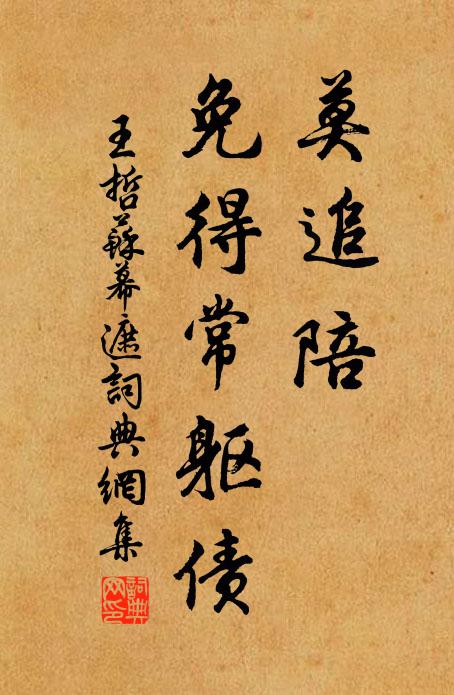 莫追陪
免得常躯债
王哲蘇幕遮詞典網集
詞典網印